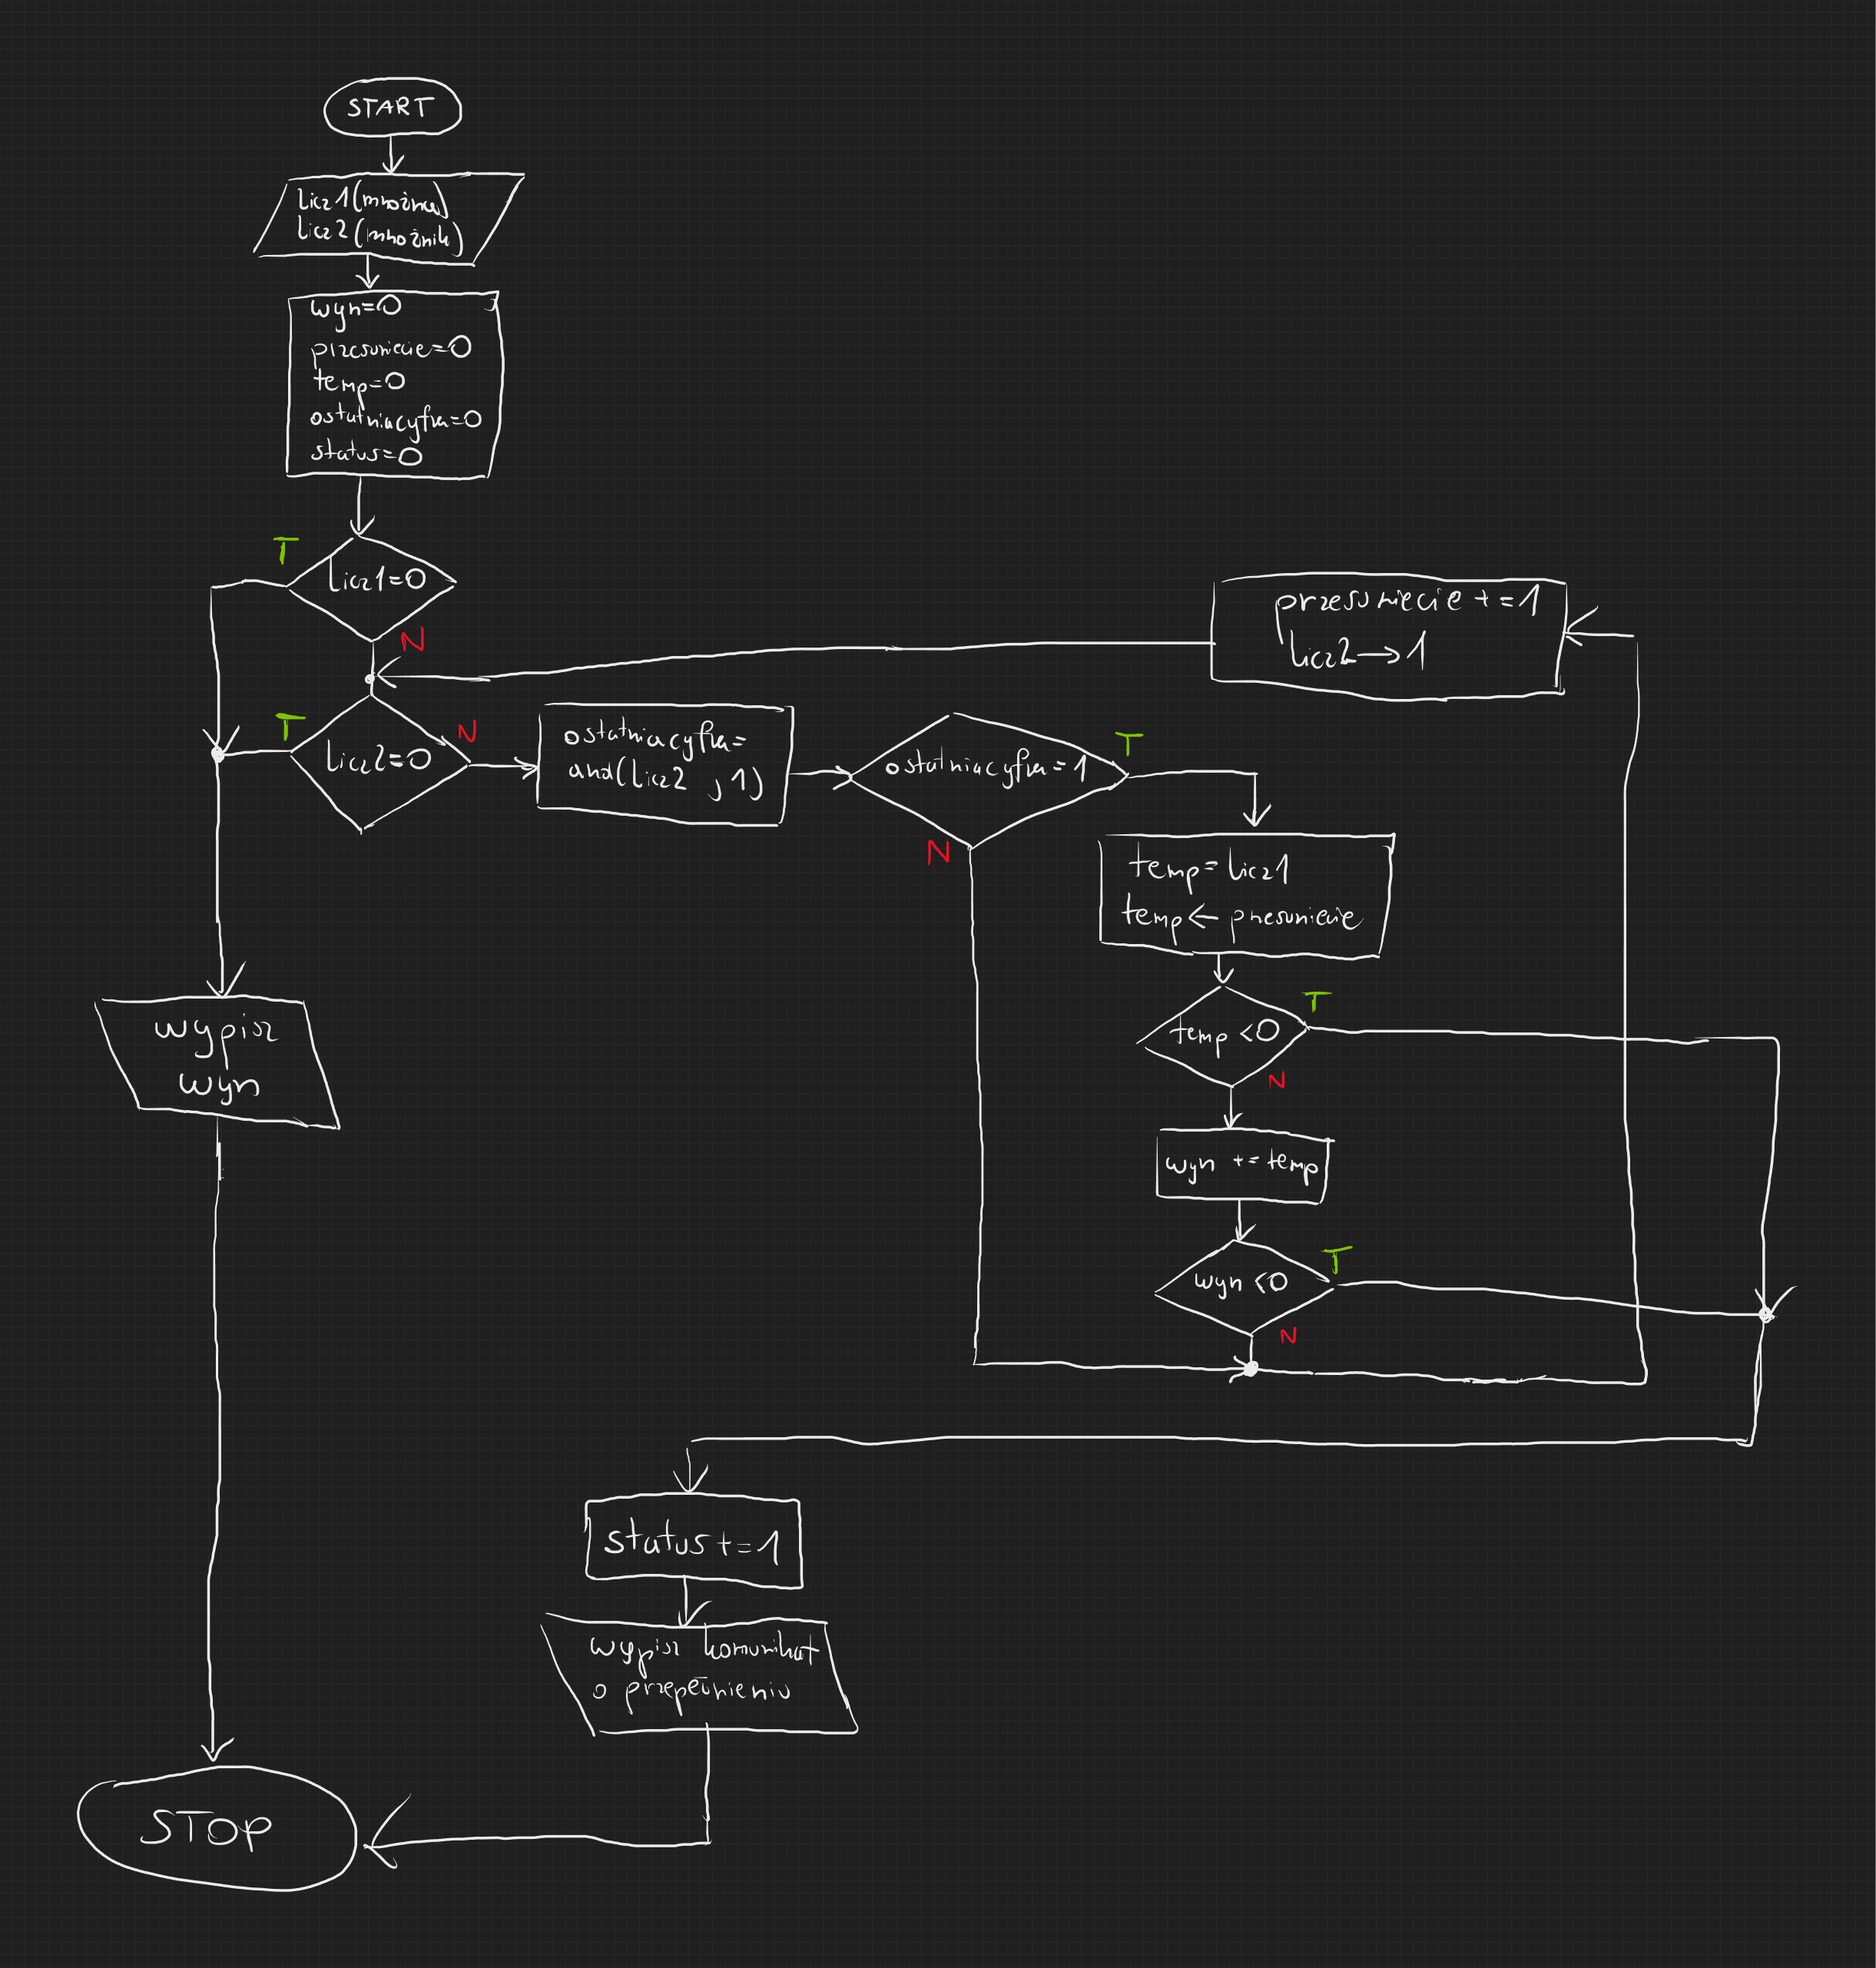 START
licz1(mnożna)
licz2(mnożnik)
wyn=0
przesuniecie=0
temp=0
ostatniacyfra=0
status=0
T
licz1=0
N
przesuniecie +=1
licz2→1
T
licz2=0
N
ostatniacyfra=
and(licz2 ,1)
ostatniacyfra=1
T
N
temp=licz1
temp← przesuniecie
temp <0
T
N
wypisz
wyn
wyn +=temp
wyn <0
T
N
status+=1
wypisz komunikat
o przepełnieniu
STOP